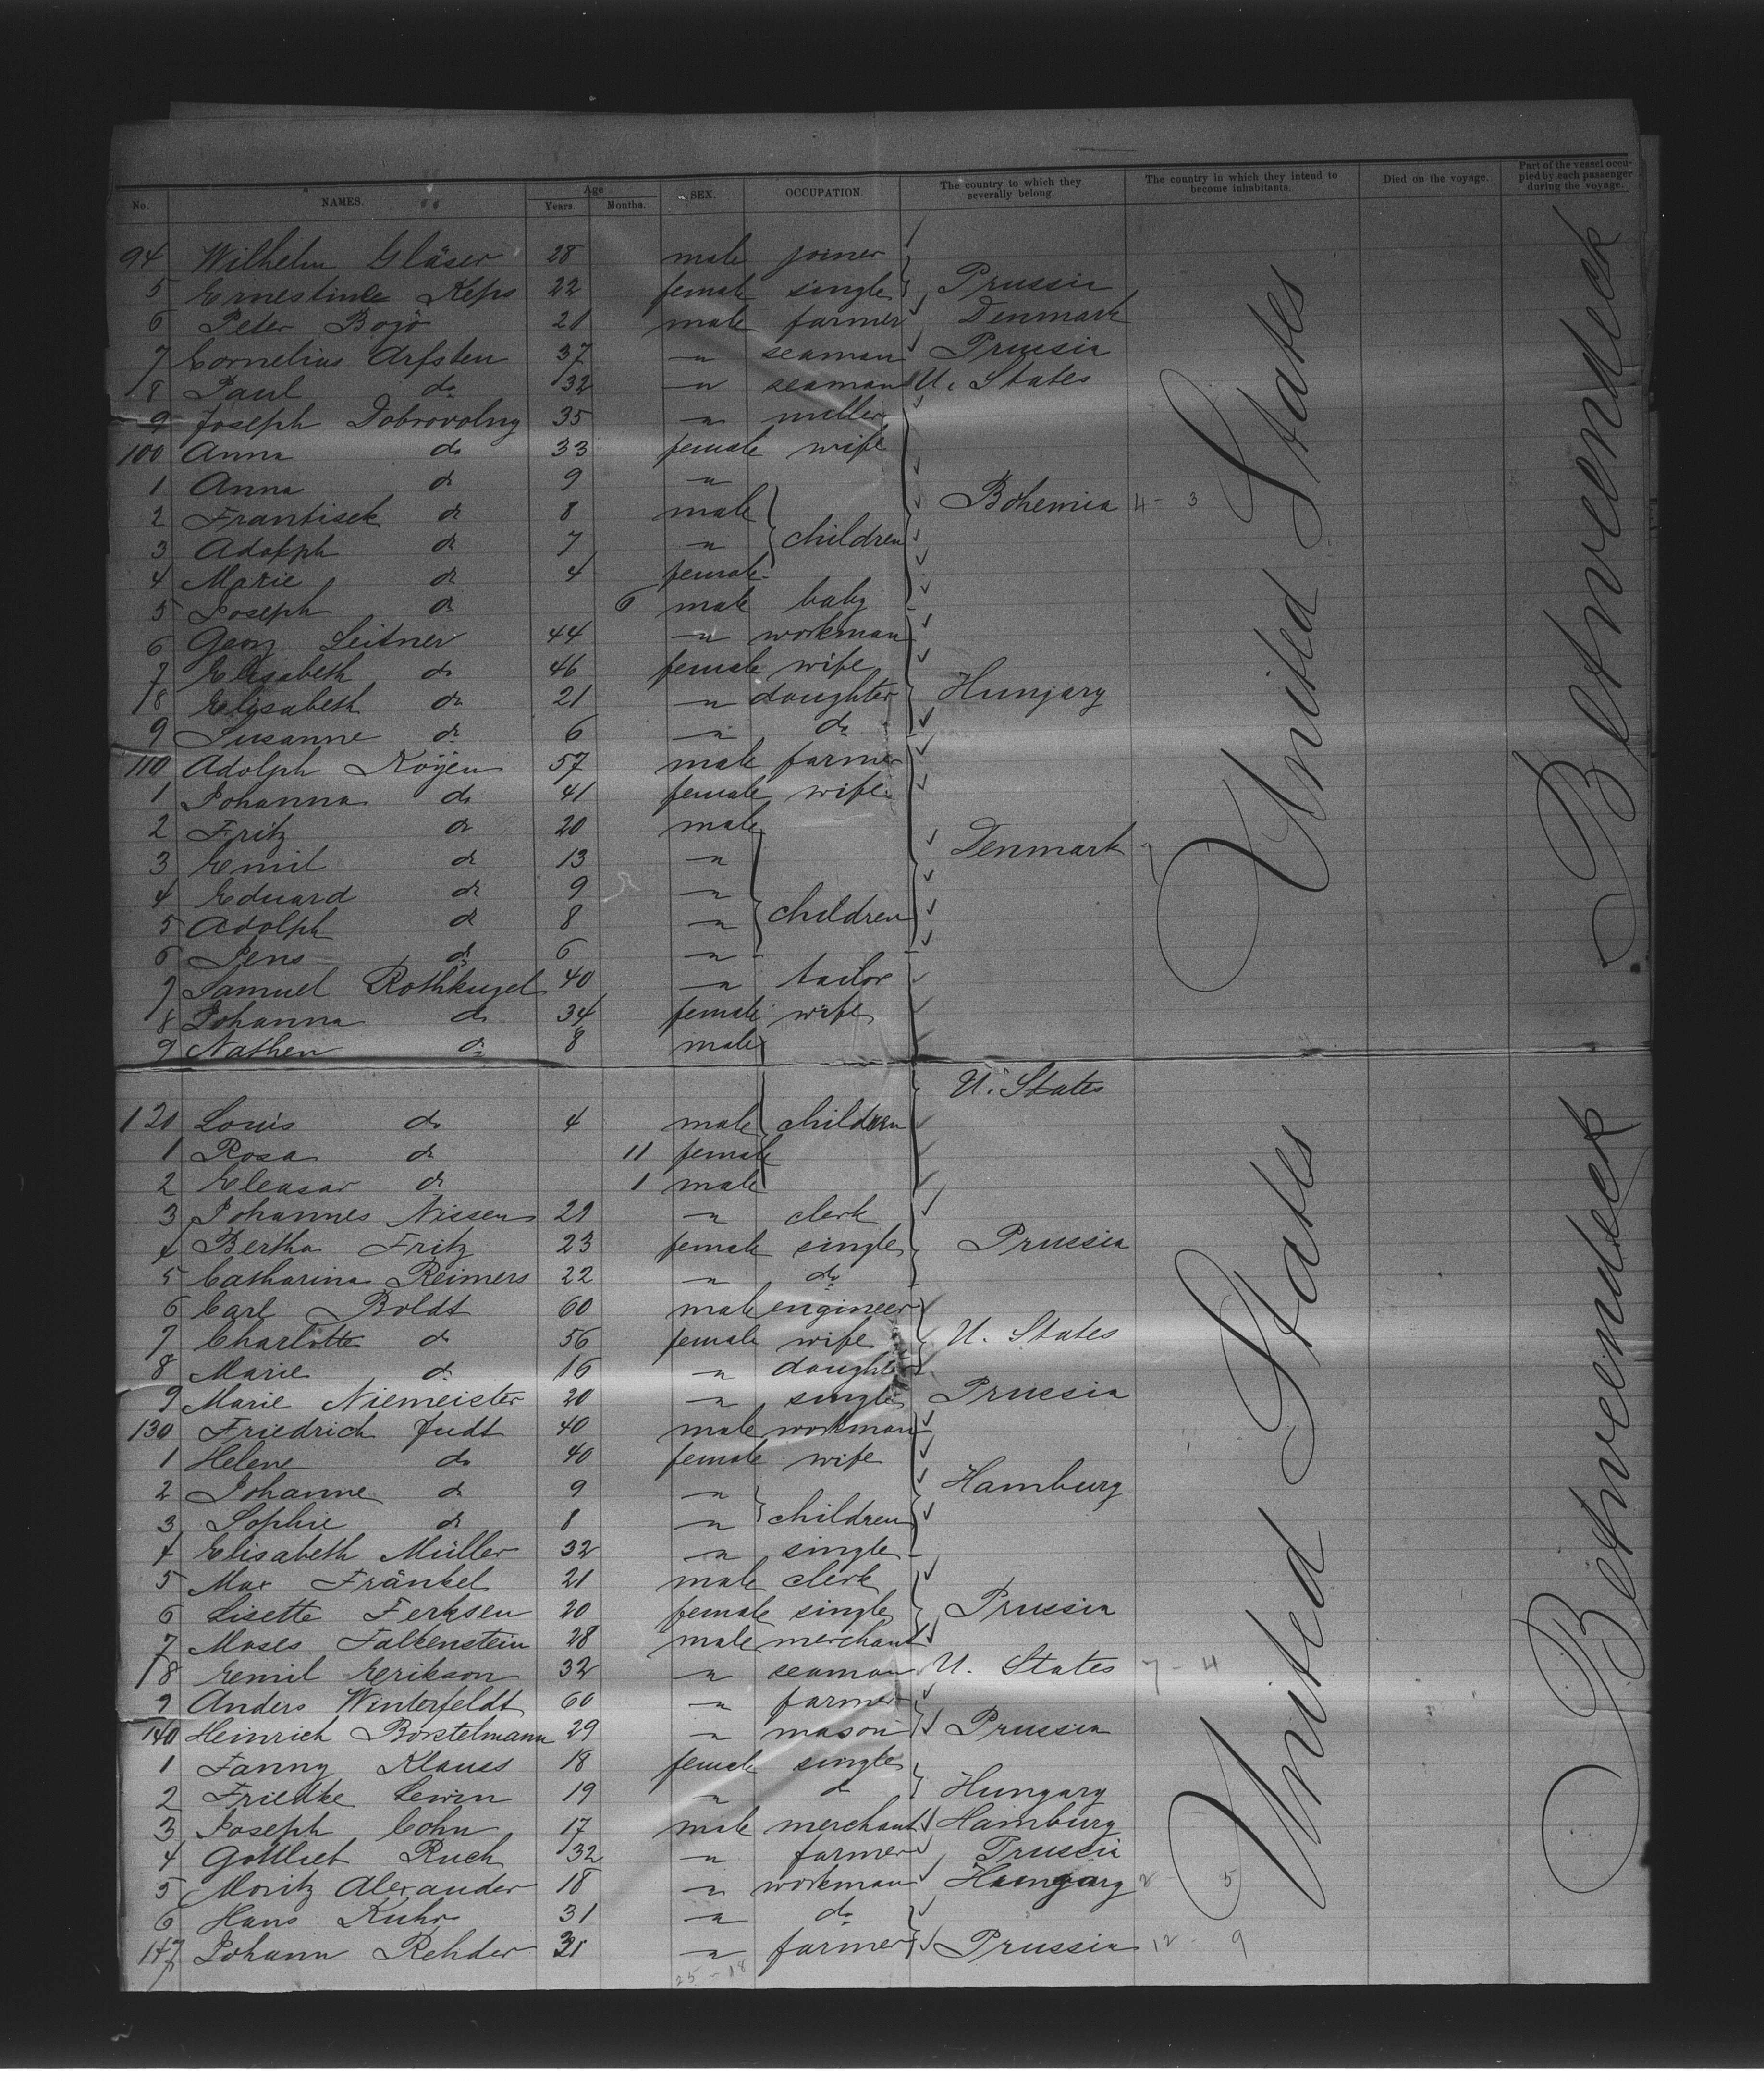 No. NAMES. Age Years. Months. SEX. OCCUPATION. The country to which they severally belong. The country in which they intend to become inhabitants. Died on the voyage. Part of the vessel occupied by each passenger during the voyage.
94 Wilhelm Gläser 28 male joiner
5 Ernestine Keps 22 female single Prussia
6 Peter Bojö 21 male farmer Denmark
7 Cornelius Arfsten 37 " seaman Prussia
8 Paul do 32 " seaman U. States
9 Joseph Dobrovolny 35 " miller
100 Anna do 33 female wife
1 Anna do 9 "
2 Frantisek do 8 male Bohemia 4 - 3
3 Adolph do 7 " children
4 Marie do 4 female
5 Joseph do 6 male baby
6 Georg Leitner 44 " workman
7 Elisabeth do 46 female wife
8 Elisabeth do 21 " daughter Hungary
9 Susanne do 6 " do
110 Adolph Köyen 57 male farmer
1 Johanna do 41 female wife
2 Fritz do 20 male
3 Emil do 13 " Denmark
4 Eduard do 9 "
5 Adolph do 8 " children
6 Jens do 6 "
7 Samuel Rothkugel 40 " tailor
8 Johanna do 34 female wife
9 Nathen do 8 male
U. States
120 Louis do 4 male children
1 Rosa do 11 female
2 Eleasar do 1 male
3 Johannes Nissen 21 " clerk
4 Bertha Fritz 23 female single Prussia
5 Catharina Reimers 22 " do
6 Carl Boldt 60 male engineer
7 Charlotte do 56 female wife U. States
8 Marie do 16 " daughter
9 Marie Niemeister 20 " single Prussia
130 Friedrich Judt 40 male workman
1 Helene do 40 female wife
2 Johanne do 9 " Hamburg
3 Sophie do 8 " children
4 Elisabeth Müller 32 " single
5 Max Fränkel 21 male clerk
6 Lisette Ferksen 20 female single Prussia
7 Moses Falkenstein 28 male merchant
8 Emil Erikson 32 " seaman U. States 7 - 4
9 Anders Winterfeldt 60 " farmer
140 Heinrich Borstelmann 29 " mason Prussia
1 Fanny Klauss 18 female single
2 Friedke Lewin 19 " do Hungary
3 Joseph Cohn 17 male merchant Hamburg
4 Gottlieb Ruch 32 " farmer Prussia
5 Moritz Alexander 18 " workman Hungary 2 - 5
6 Hans Kuhr 31 " do
147 Johann Rehder 31 " farmer Prussia 12 - 9
25 - 18
United States
Betweendeck
United States
Betweendeck